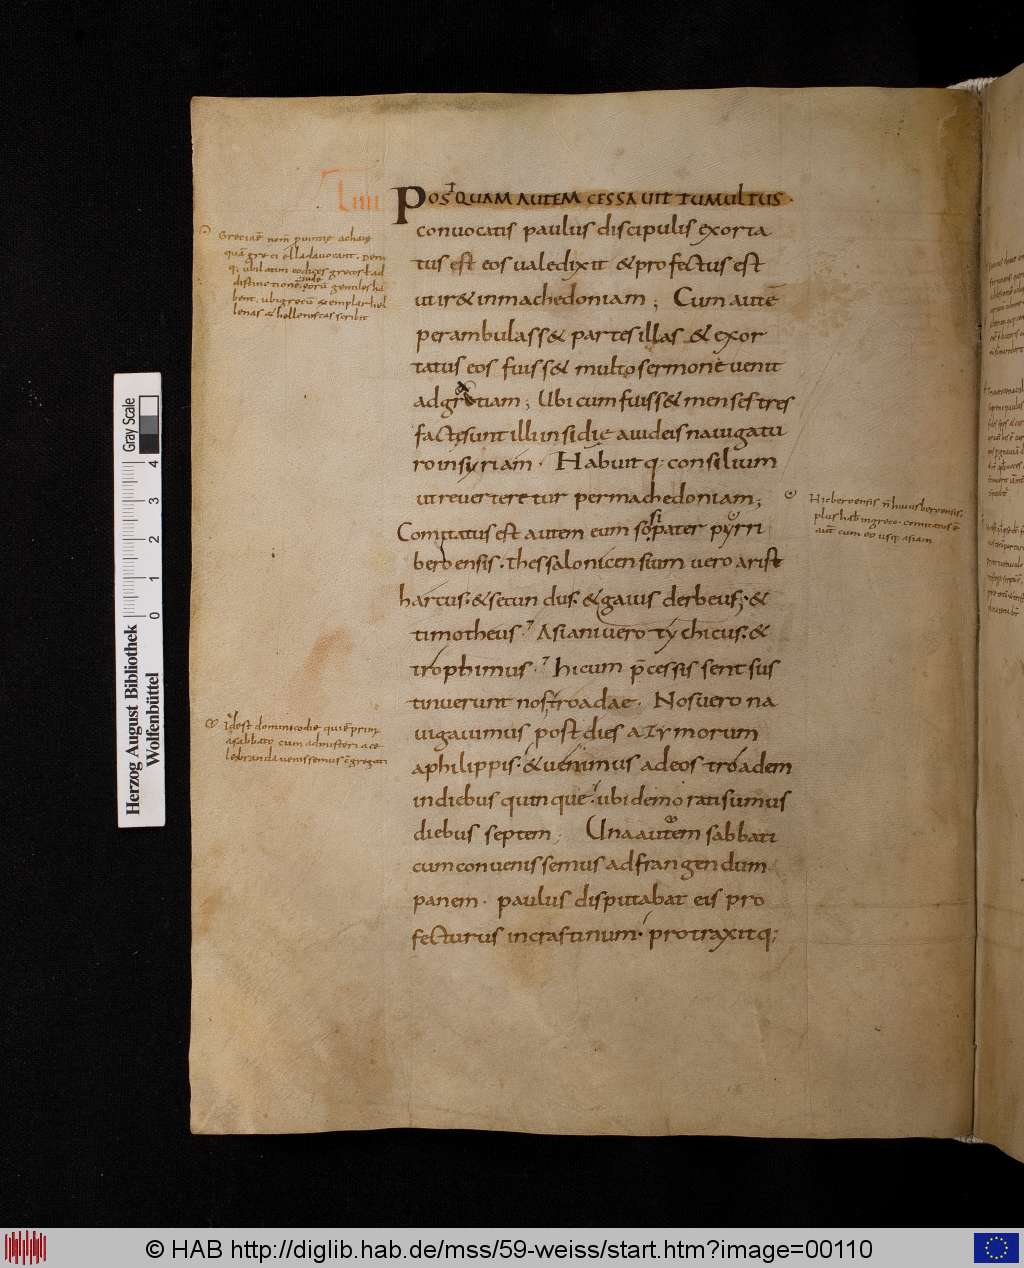 LIIII
POSTQUAM AUTEM CESSAUIT TUMULTUS·
conuocatis paulus discipulis exorta
tus est eos ualedixit & profectus est
ut ir& inmachedoniam; Cum autē
perambulass& partes illas & exor
tatus eos fuiss& multo sermone uenit
adgretiam; Ubi cum fuiss& menses tres
factęsunt illi insidię auideis nauigatu
ro insyriam· Habuitq; consilium
ut reuerteretur per machedoniam;
Comitatus est autem eum sosipater pyrri
berbensis· thessalonicensium uero arist
harcus· & secundus· & gaius derbeus; &
timotheus· Asiani uero tychicus· &
trophimus· hi cum p̄cessissent sus
tinuerunt nos troadae· Nos uero na
uigauimus post dies azymorum
aphilippis· & uenimus adeos troadem
indiebus quinque· ubi demorati sumus
diebus septem· Una autem sabbati
cum conuenissemus adfrangendum
panem· paulus disputabat eis pro
fecturus incrastinum· protraxitq;
Greciae nom̄ puincię achaię
quā greci elladauocant·
q; ubi latini codices grecos
distinctione eorū gentiles ha
bent· ubi grecū exemplar hel
lenas & hellenistas scribit
Hic beroensis
plus hab& ingreco· comitatus ē
autē cum eo usq; asiam
Idest dominico die qui ē prim'
asabbato cum admisteria ce
lebranda uenissemus cgregati
Herzog August Bibliothek
Wolfenbüttel
0 1 2 3 4
Gray Scale
© HAB http://diglib.hab.de/mss/59-weiss/start.htm?image=00110